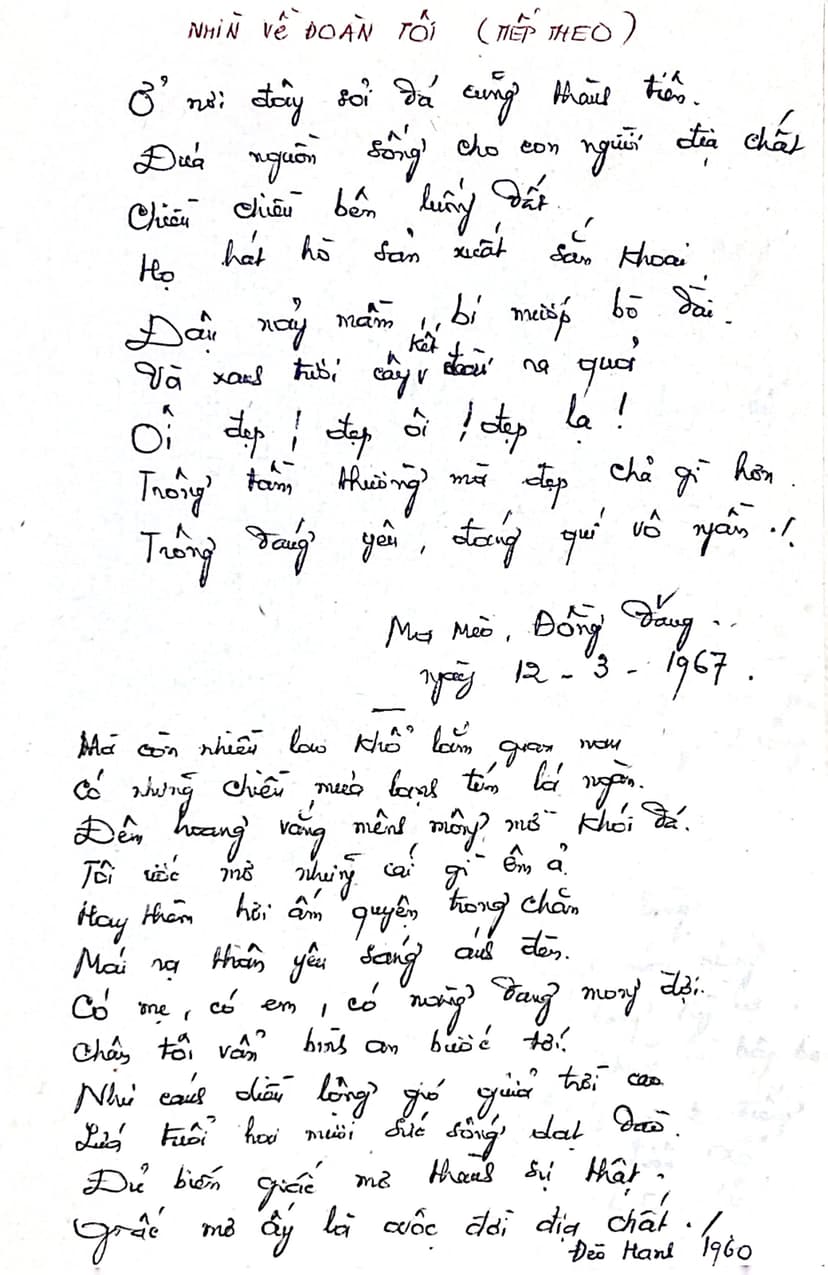 NHÌN VỀ ĐOÀN TÔI (TIẾP THEO)
Ở nơi đây sỏi đá cũng thành tiền.
Đưa nguồn sống cho con người địa chất
Chiều chiều bên luống đất
Họ hát hò sản xuất sắn khoai
Đậu nảy mầm, bí mướp bò dài.
Và xanh tươi cây kết ra quả
Ôi đẹp! đẹp ôi! đẹp lạ!
Trông tầm thường mà đẹp chả gì hơn.
Trông đáng yêu, đáng quí vô ngần./.
Mơ Mèo, Đồng Đăng..
ngày 12-3-1967.
Mà còn nhiều lao khổ lắm gian nan
Có những chiều mưa lạnh tím lá ngàn.
Đêm hoang vắng mênh mông mờ khói đá.
Tôi ước mơ những cái gì êm ả
Hay thèm hơi ấm quyện trong chăn
Mái rạ thân yêu sáng ánh đèn.
Có mẹ, có em, có nàng đang mong đợi..
Chân tôi vẫn bình an bước tới!
Như cánh diều lộng gió giữa trời cao
Lứa tuổi hai mươi sức sống dạt dào.
Đủ biến giấc mơ thành sự thật.
Giấc mơ ấy là cuộc đời địa chất./.
Đèo Hanh 1960